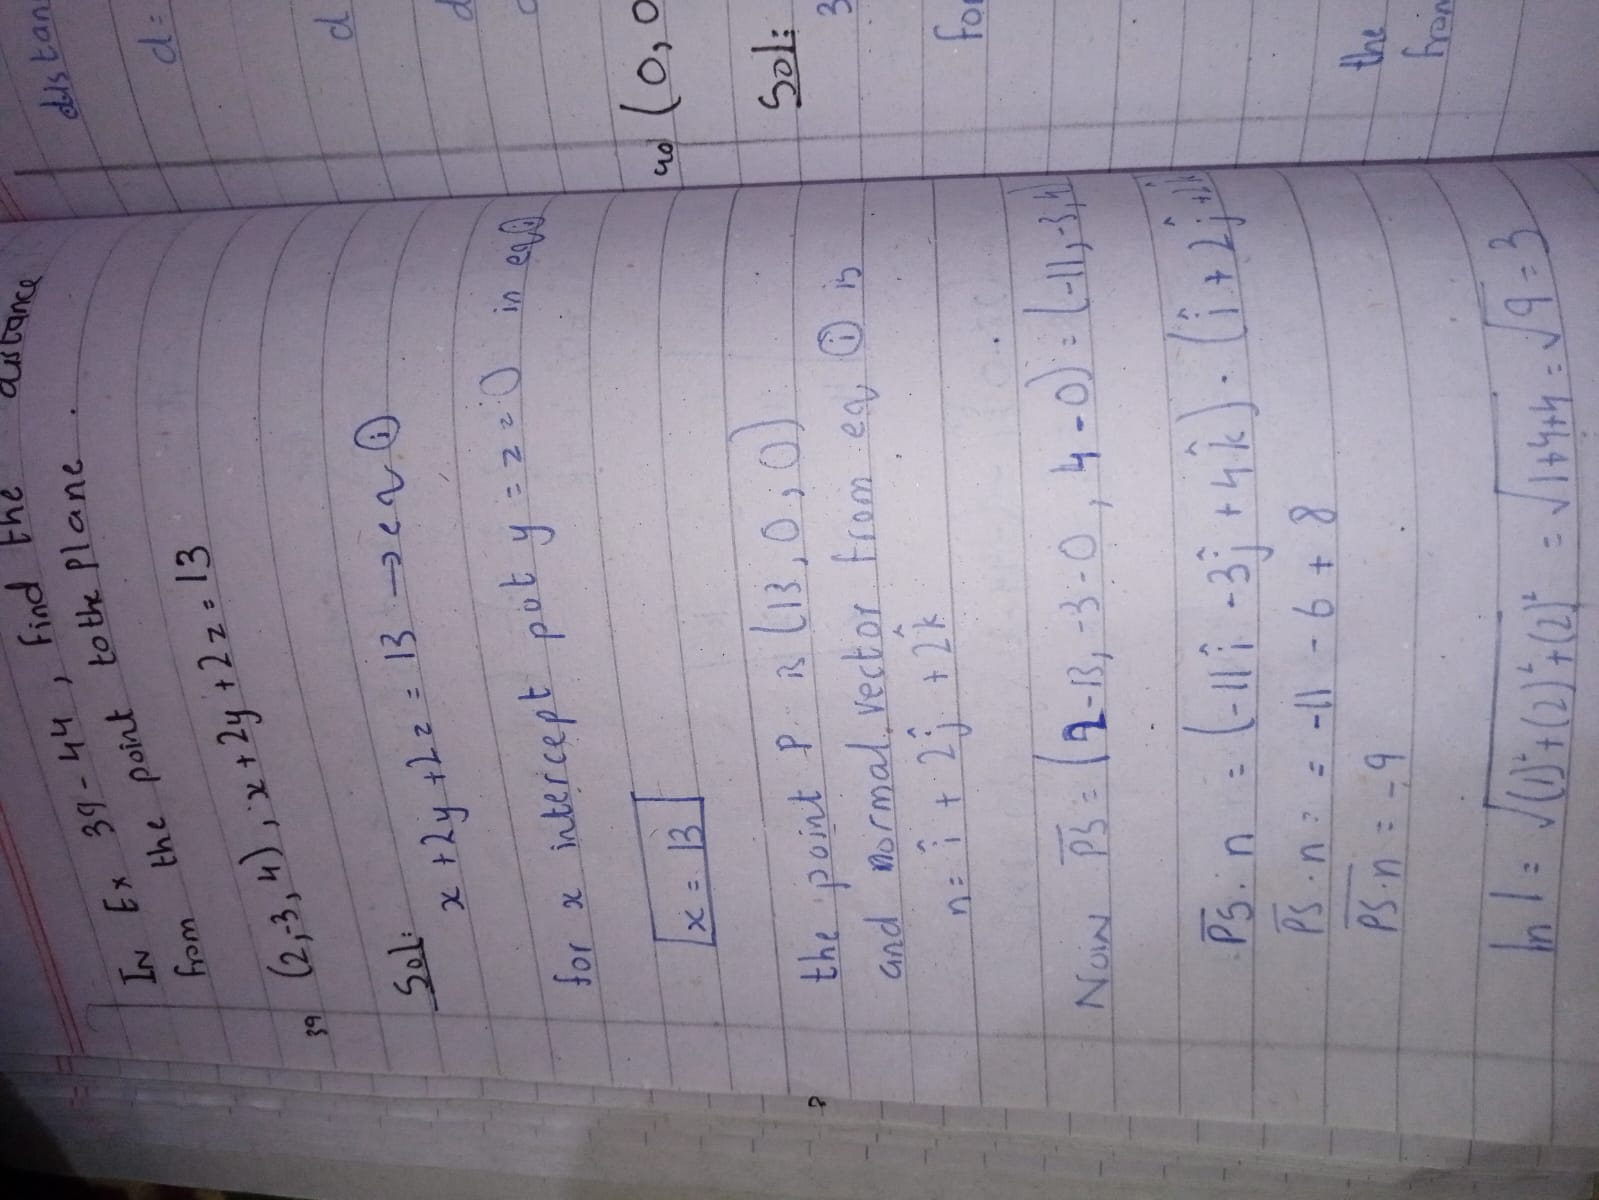 In Ex 39-44, find the distance
from the point to the plane.
39 (2,-3,4), x+2y+2z=13
Sol:
x+2y+2z=13 → eq (i)
for x intercept put y=z=0 in eq (i)
x=13
the point P is (13,0,0)
and normal vector from eq (i) is
n= î + 2ĵ + 2k̂
Now P̅S̅=(2-13,-3-0,4-0)=(-11,-3,4)
P̅S̅.n =(-11î -3ĵ +4k̂).(î+2ĵ+2k̂)
P̅S̅.n= = -11 - 6 + 8
P̅S̅.n = -9
|n| = √(1)²+(2)²+(2)² = √1+4+4 = √9 = 3
distan
d=
d
d
40 (0,0
Sol:
3
for
the
from